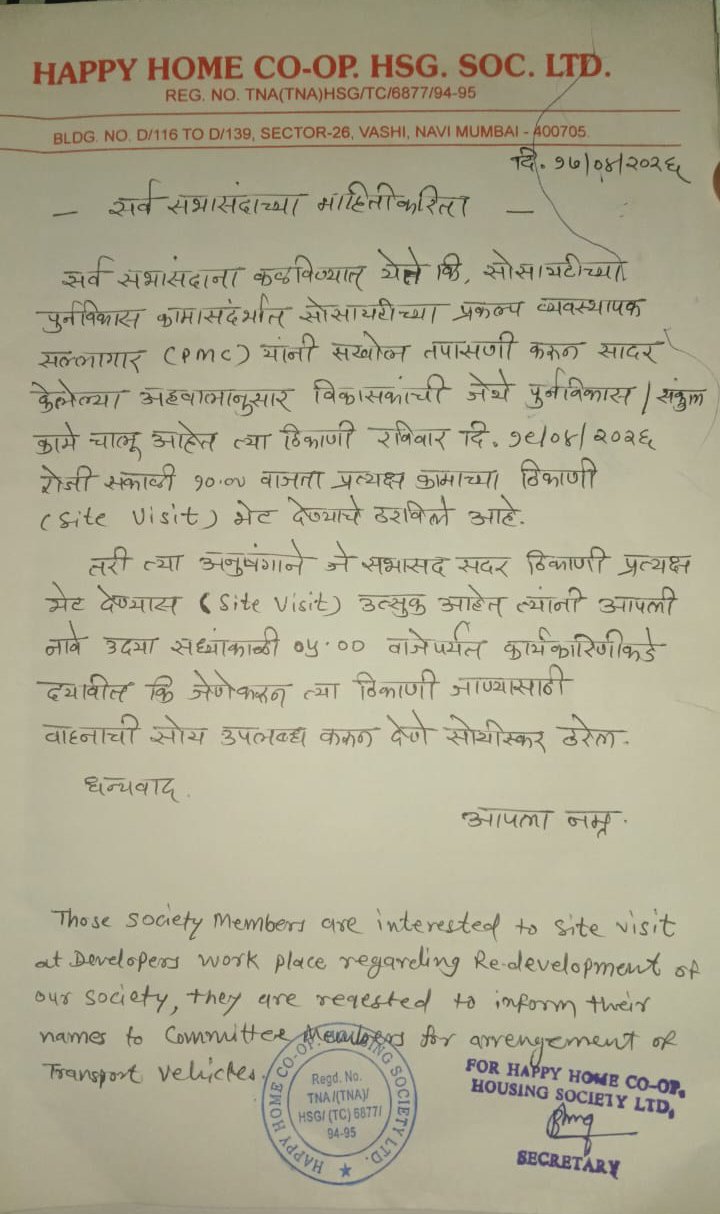 HAPPY HOME CO-OP. HSG. SOC. LTD.
REG. NO. TNA(TNA)HSG/TC/6877/94-95
BLDG. NO. D/116 TO D/139, SECTOR-26, VASHI, NAVI MUMBAI - 400705.
दि. १७/०४/२०२६
— सर्व सभासंदाच्या माहितीकरिता —
सर्व सभासंदाना कळविण्यात येते कि, सोसायटीच्या
पुर्नविकास कामासंदर्भात सोसायटीच्या प्रकल्प व्यवस्थापक
सल्लागार (PMC) यांनी सखोल तपासणी करून सादर
केलेल्या अहवालानुसार विकासकांची जेथे पुर्नविकास / संकुल
कामे चालू आहेत त्या ठिकाणी रविवार दि. १९/०४/२०२६
रोजी सकाळी १०.०० वाजता प्रत्यक्ष कामाच्या ठिकाणी
(Site Visit) भेट देण्याचे ठरविले आहे.
तरी त्या अनुषंगाने जे सभासद सदर ठिकाणी प्रत्यक्ष
भेट देण्यास (Site Visit) उत्सुक आहेत त्यांनी आपली
नावे उदया सध्यांकाळी ०५.०० वाजेपर्यंत कार्यकारिणीकडे
दयावीत कि जेणेकरून त्या ठिकाणी जाण्यासाठी
वाहनाची सोय उपलब्ध करून देणे सोयीस्कर ठरेल.
धन्यवाद.
आपला नम्र.
Those society Members are interested to site visit
at Developers work place regarding Re-development of
our society, they are reqested to inform their
names to Committee Members for arrengement of
Transport vehicles.
HAPPY HOME CO-OP. HOUSING SOCIETY LTD.
Regd. No.
TNA/(TNA)/
HSG/(TC) 6877/
94-95
FOR HAPPY HOME CO-OP.
HOUSING SOCIETY LTD,
SECRETARY